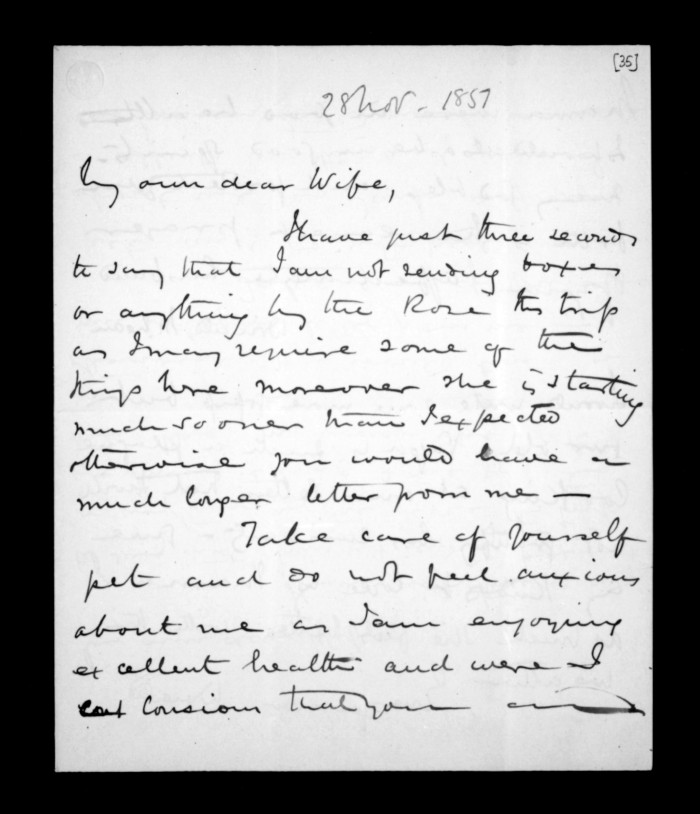 [35]
28 Nov. 1857
My own dear Wife,
I have just three seconds
to say that I am not sending boxes
or anything by the Rose this trip
as I may require some of the
things here moreover she is starting
much sooner than I expected
otherwise you would have a
much longer letter from me —
Take care of yourself
pet and do not feel anxious
about me as I am enjoying
excellent health and were I
but conscious that you are